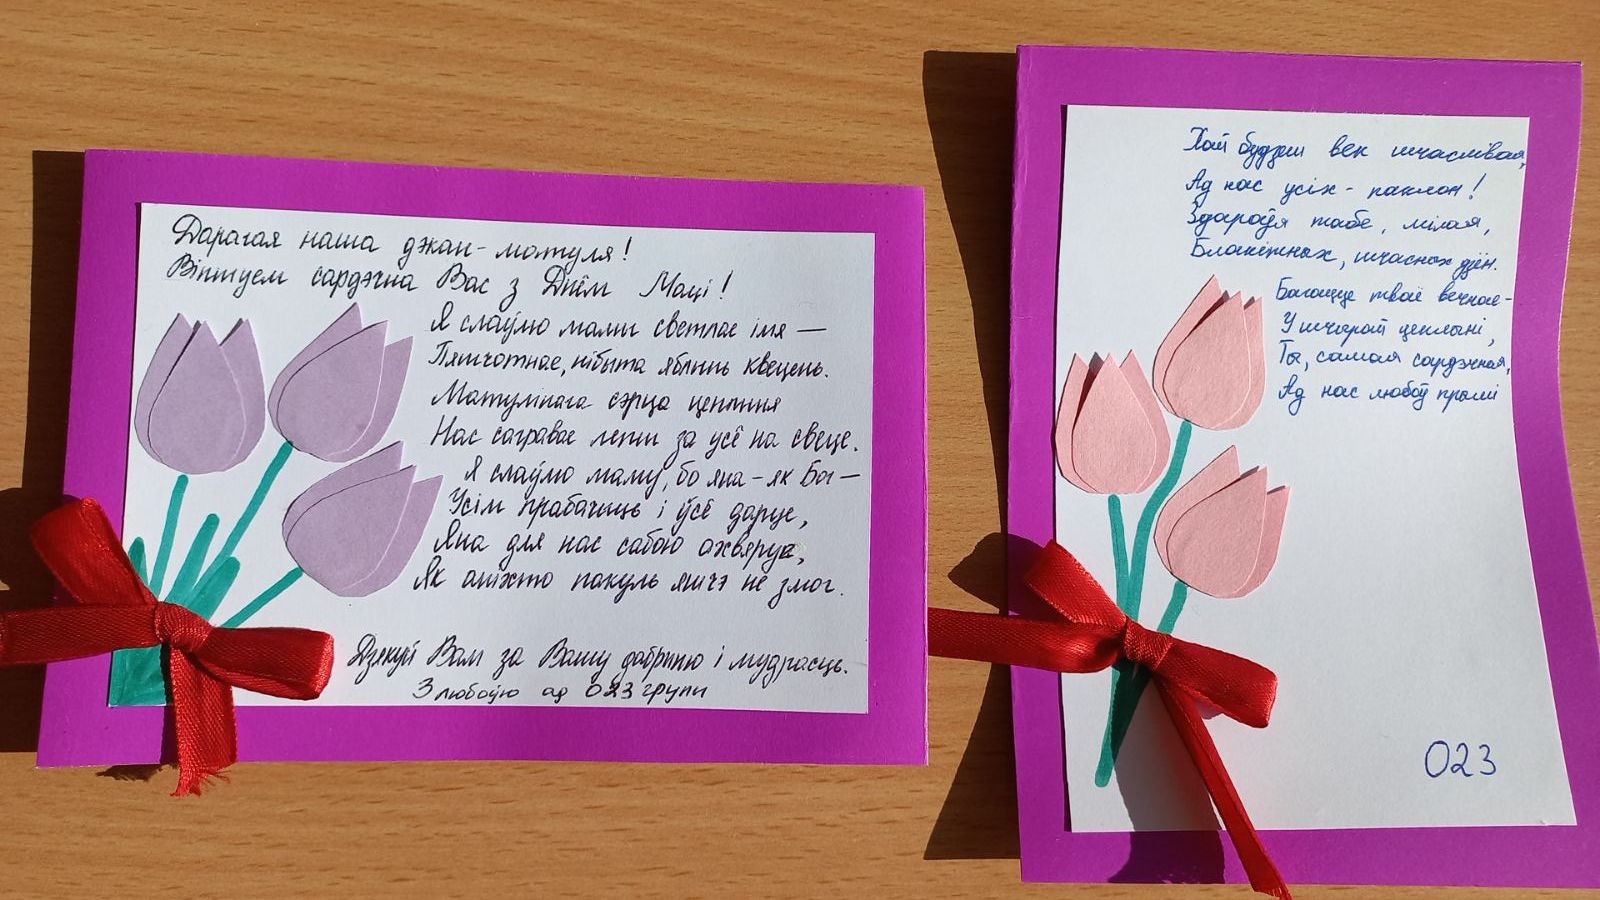 Дарагая наша джан-матуля!
Віншуем сардэчна Вас з Днём Маці!
Я слаўлю мамы светлае імя —
Пяшчотнае, нібыта яблынь квецень.
Матулінага сэрца цеплыня
Нас сагравае лепш за ўсё на свеце.
Я слаўлю маму, бо яна – як Бог —
Усім прабачыць і ўсё даруе,
Яна для нас сабою ахвяруе,
Як аніхто пакуль яшчэ не змог.
Дзякуй Вам за Вашу дабрыню і мудрасць.
З любоўю ад 023 групы
Хай будзеш век шчаслівая,
Ад нас усіх - паклон!
Здароўя табе, мілая,
Блакітных, шчасных дзён.
Багацце тваё вечнае-
У шчырай цеплыні,
Ты, самая сардэчная,
Ад нас любоў прымі
023